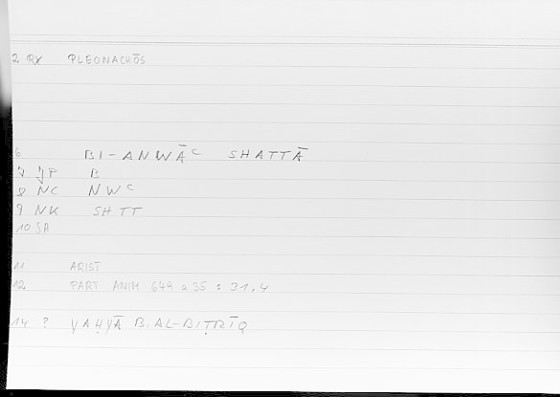 2 RX PLEONACHŌS
6 BI-ANWĀC SHATTĀ
7 JP B
8 NC NWC
9 NK SHTT
10 SA
11 ARIST
12 PART ANIM 649 a 35 : 31.4
14 ? YAḤYĀ B. AL-BIṬRĪQ